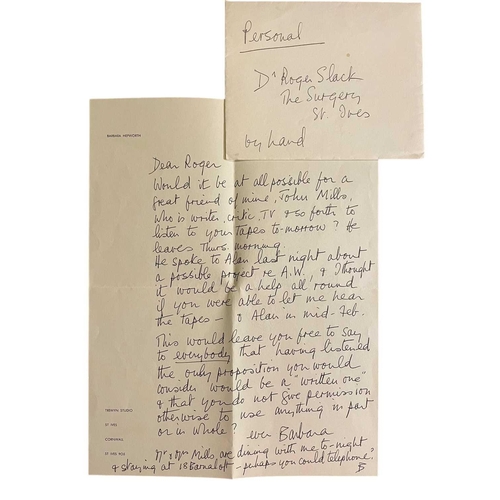 Personal
Dr Roger Slack
The Surgery
St. Ives
by hand
BARBARA HEPWORTH
Dear Roger
Would it be at all possible for a
great friend of mine, John Mills,
who is writer, critic, TV & so forth to
listen to your tapes to-morrow? He
leaves Thurs. morning.
He spoke to Alan last night about
a possible project re A.W., & I thought
it would be a help all round
if you were able to let me hear
the tapes - & Alan in mid-Feb.
This would leave you free to say
to everybody that having listened
the only proposition you would
consider would be a "written one"
& that you do not give permission
otherwise to use anything in part
or in whole? ever Barbara
TREWYN STUDIO
ST IVES
CORNWALL
ST IVES
Mr & Mrs Mills, are dining with me to-night
& staying at 18 Barnaloft - perhaps you could telephone?
B